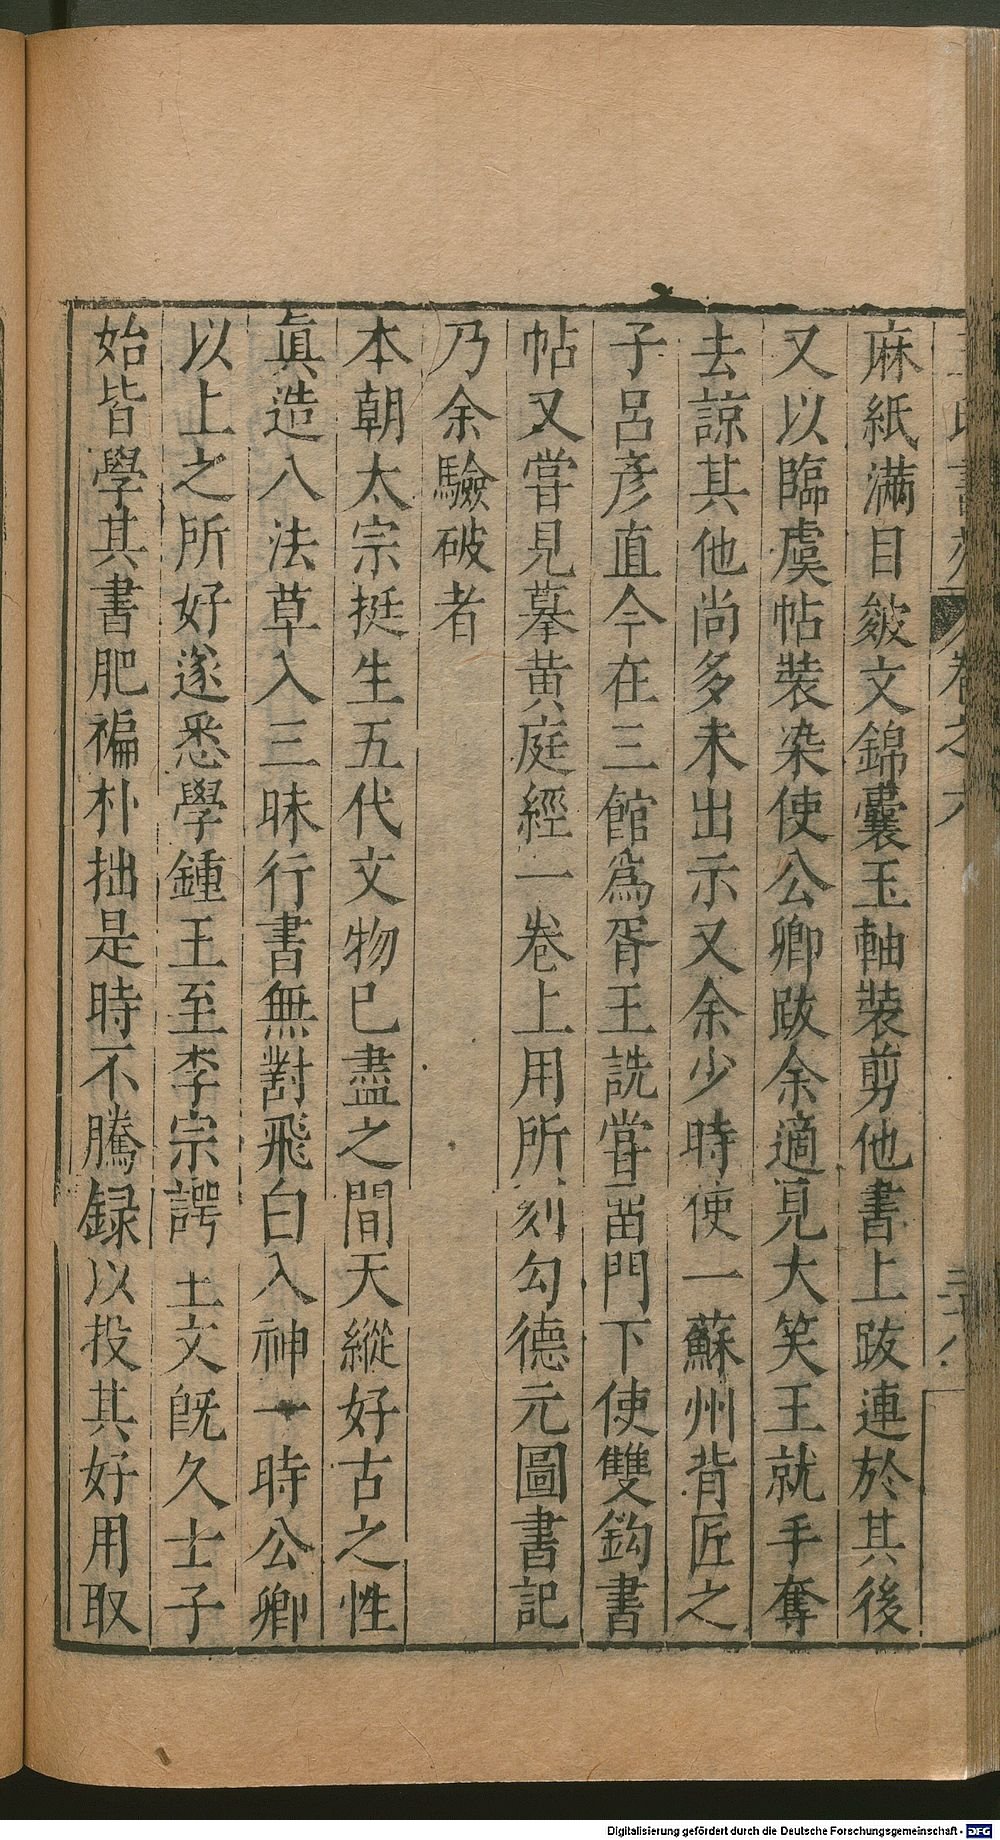 王氏書苑 卷之六
麻紙滿目皴文錦囊玉軸裝剪他書上跋連於其後
又以臨虞帖裝染使公卿跋余適見大笑王就手奪
去諒其他尚多未出示又余少時使一蘇州背匠之
子呂彥直今在三館爲胥王詵嘗畱門下使雙鈎書
帖又嘗見摹黃庭經一卷上用所刻勾德元圖書記
乃余驗破者
本朝太宗挺生五代文物已盡之間天縱好古之性
眞造八法草入三昧行書無對飛白入神一時公卿
以上之所好遂悉學鍾王至李宗諤主文旣久士子
始皆學其書肥褊朴拙是時不騰録以投其好用取
Digitalisierung gefördert durch die Deutsche Forschungsgemeinschaft - DFG